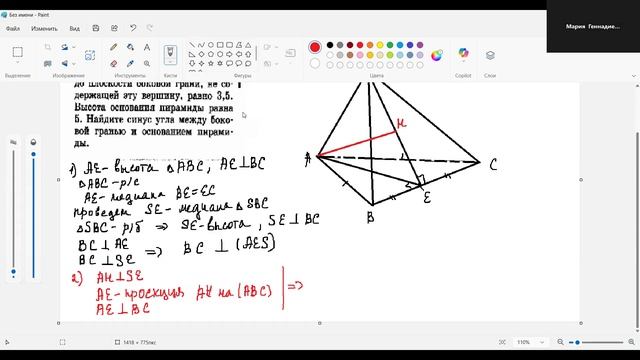 Без имени - Paint
Мария Геннадие...
Файл Изменить Вид
Выделение Изображение Инструменты Кисти Фигуры Размер Цвета Copilot Слои
до плоскости боковой грани, не со-
держащей эту вершину, равно 3,5.
Высота основания пирамиды равна
5. Найдите синус угла между боко-
вой гранью и основанием пирами-
ды.
1) AE - высота △ABC, AE⊥BC
△ABC - р/с
AE - медиана BE=EC
проведем SE - медиана △SBC
△SBC - р/б ⇒ SE - высота, SE⊥BC
BC⊥AE
BC⊥SE
⇒ BC ⊥ (AES)
2) AH⊥SE
AE - проекция AH на (ABC)
AE⊥BC
⇒
A
H
C
B
E
1418 × 775пкс
110%